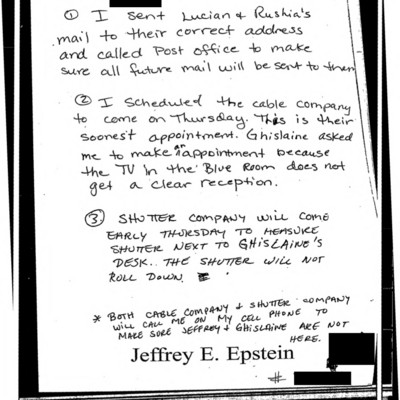 ① I sent Lucian & Rushia's
mail to their correct address
and called Post office to make
sure all future mail will be sent to them
② I scheduled the cable company
to come on Thursday. This is their
soonest appointment. Ghislaine asked
me to make an appointment because
the TV in the Blue Room does not
get a clear reception.
③ SHUTTER COMPANY WILL COME
EARLY THURSDAY TO MEASURE
SHUTTER NEXT TO GHISLAINE'S
DESK.. THE SHUTTER WILL NOT
ROLL DOWN.
* BOTH CABLE COMPANY & SHUTTER COMPANY
WILL CALL ME ON MY CELL PHONE TO
MAKE SURE JEFFREY & GHISLAINE ARE NOT
HERE.
Jeffrey E. Epstein
#